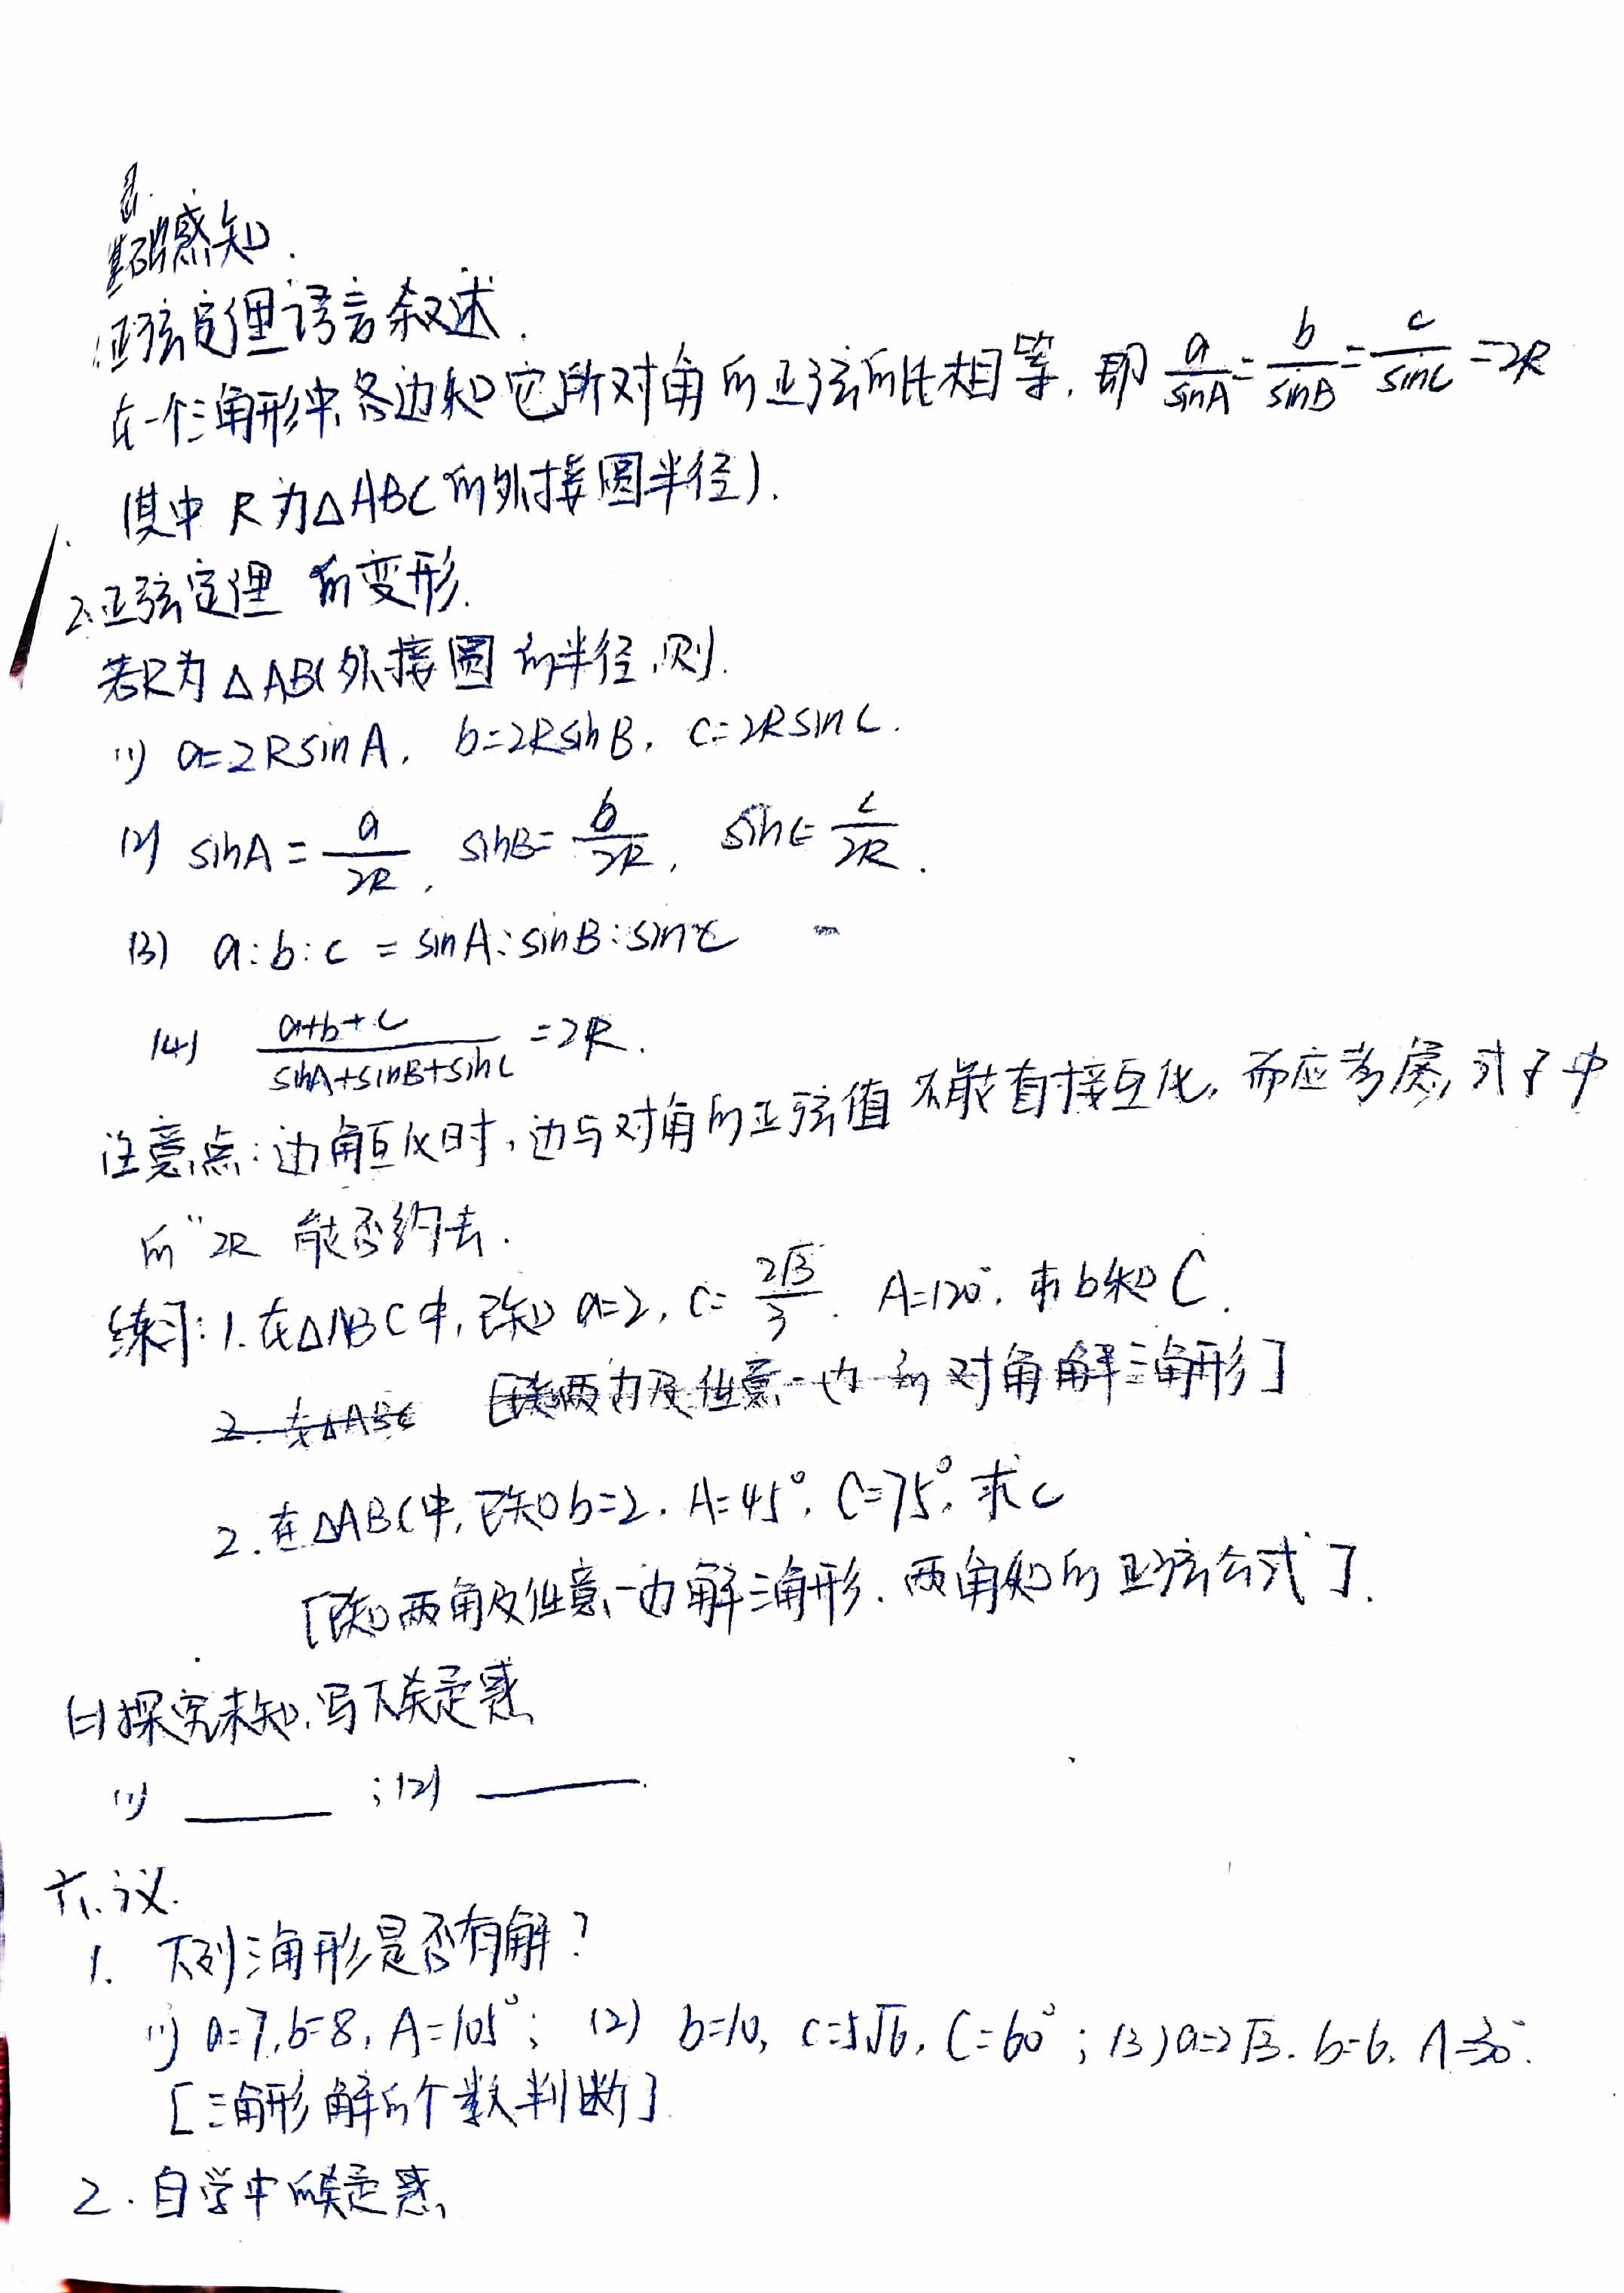 基础感知.
1.正弦定理语言叙述.
在一个三角形中,各边和它所对角的正弦的比相等,即 a/sinA = b/sinB = c/sinC = 2R
(其中 R 为△ABC的外接圆半径).
2.正弦定理的变形.
若R为△ABC外接圆的半径,则.
(1) a=2RsinA, b=2RsinB, c=2RsinC.
(2) sinA = a/2R, sinB = b/2R, sinC = c/2R.
(3) a:b:c = sinA:sinB:sinC
(4) (a+b+c)/(sinA+sinB+sinC) = 2R.
注意点:边角互化时,边与对角的正弦值不能直接互化,而应考虑式子中
的"2R 能否约去.
练习:1.在△ABC中,已知 a=2, c= 2√3/3. A=120°, 求b和C.
2. 在△ABC [已知两边及任意一边的对角解三角形]
2.在△ABC中,已知b=2. A=45°, C=75°, 求c
[已知两角及任意一边解三角形.两角和的正弦公式].
(二)探究未知,写下疑惑
(1) ____ ;(2) ____.
六、议.
1. 下列三角形是否有解?
(1) a=7,b=8,A=105°; (2) b=10, c=5√6, C=60°; (3) a=2√3. b=6, A=30°.
[三角形解的个数判断]
2.自学中的疑惑